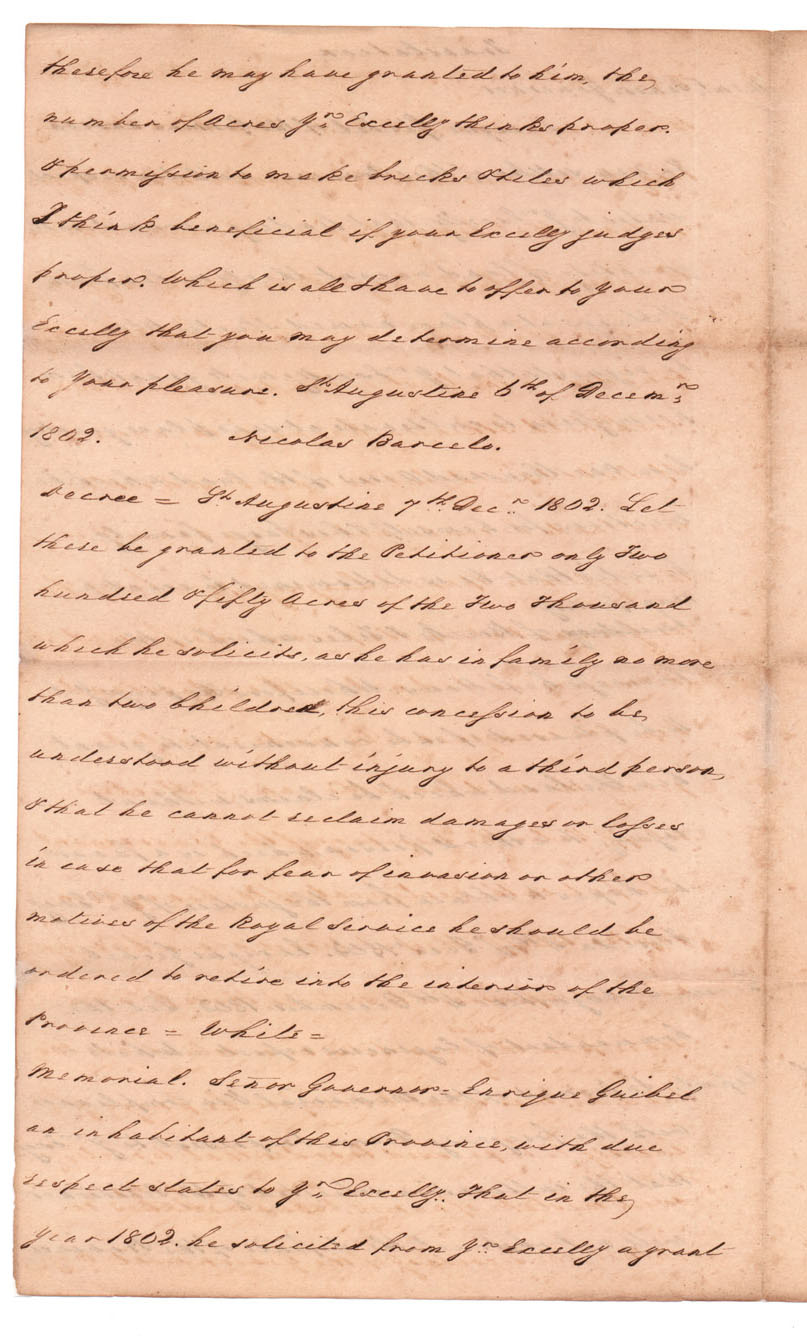 therefore he may have granted to him, the
number of Acres Yr. Excelly thinks proper.
& permission to make bricks & tiles which
I think beneficial if your Excelly judges
proper. Which is all I have to offer to your
Excelly that you may determine according
to your pleasure. St. Augustine 6th of Decemr.
1802. Nicolas Barcelo.
Decree = St. Augustine 7th Decr. 1802. Let
there be granted to the Petitioner only Two
hundred & fifty Acres of the Two Thousand
which he solicits, as he has in family no more
than two Children, this concession to be
understood without injury to a third person,
& that he cannot reclaim damages or losses
in case that for fear of invasion or other
motives of the Royal Service he should be
ordered to retire into the interior of the
Province = White =
Memorial. Señor Governor = Enrique Guibel
an inhabitant of this Province, with due
respect states to Yr. Excelly. That in the
year 1802. he solicited from Yr. Excelly a grant